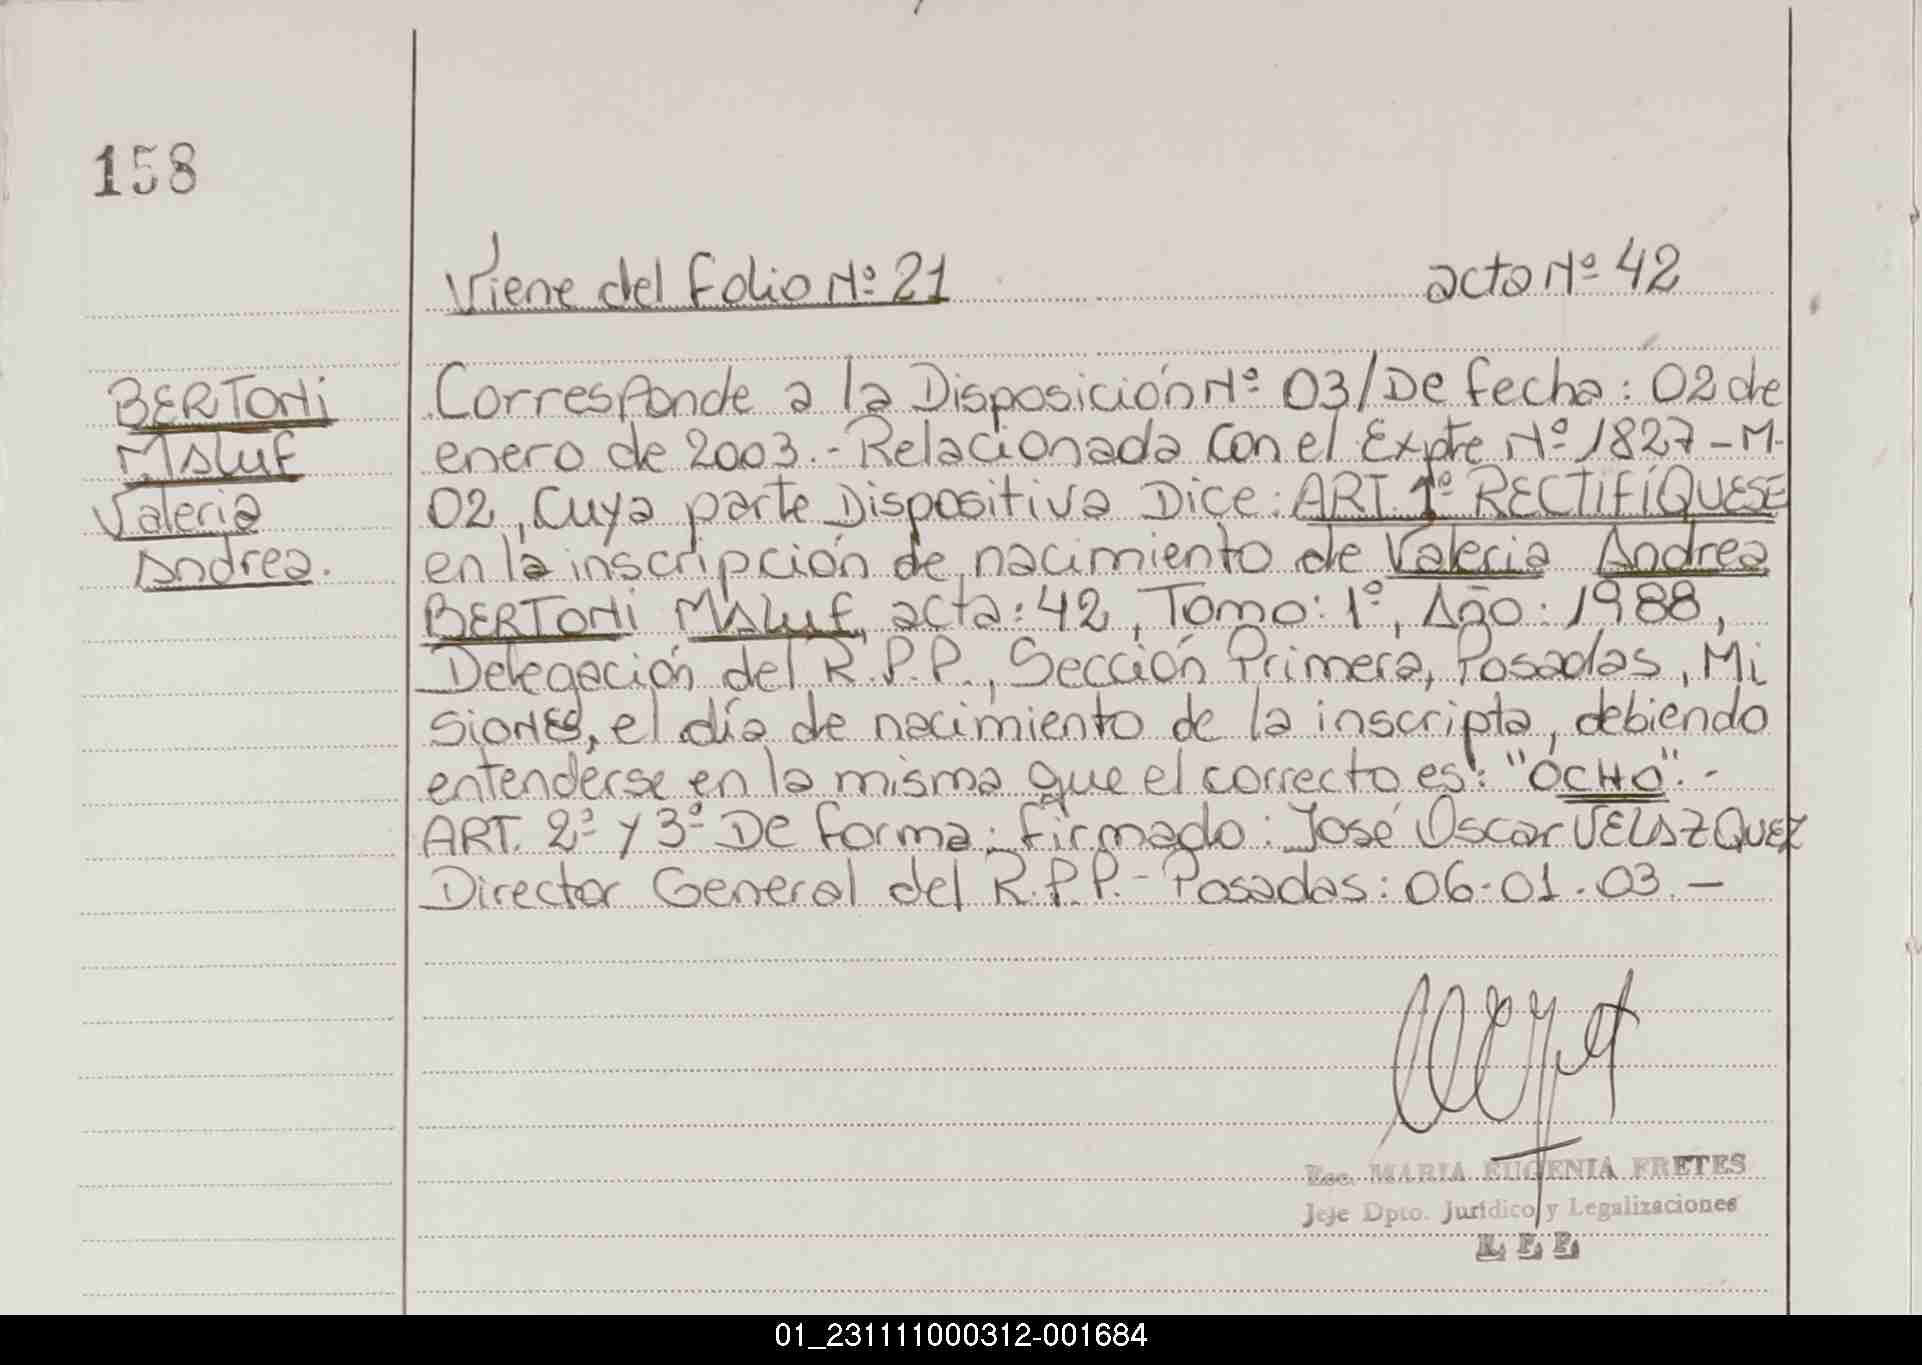 158
Viene del Folio Nº 21 acta Nº 42
BERTONI
MALUF
Valeria
Andrea.
Corresponde a la Disposición Nº 03/De fecha: 02 de
enero de 2003.- Relacionada con el Expte Nº 1827-M-
02, Cuya parte Dispositiva Dice: ART. 1º RECTIFÍQUESE
en la inscripción de nacimiento de Valeria Andrea
BERTONI MALUF, acta: 42, Tomo: 1º, Año: 1988,
Delegación del R.P.P., Sección Primera, Posadas, Mi
siones, el día de nacimiento de la inscripta, debiendo
entenderse en la misma que el correcto es: "OCHO".-
ART. 2º y 3º De forma: firmado: José Oscar VELAZQUEZ
Director General del R.P.P.- Posadas: 06-01-03.-
Esc. MARIA EUGENIA FRETES
Jefe Dpto. Jurídico y Legalizaciones
R. P. P.
01_231111000312-001684